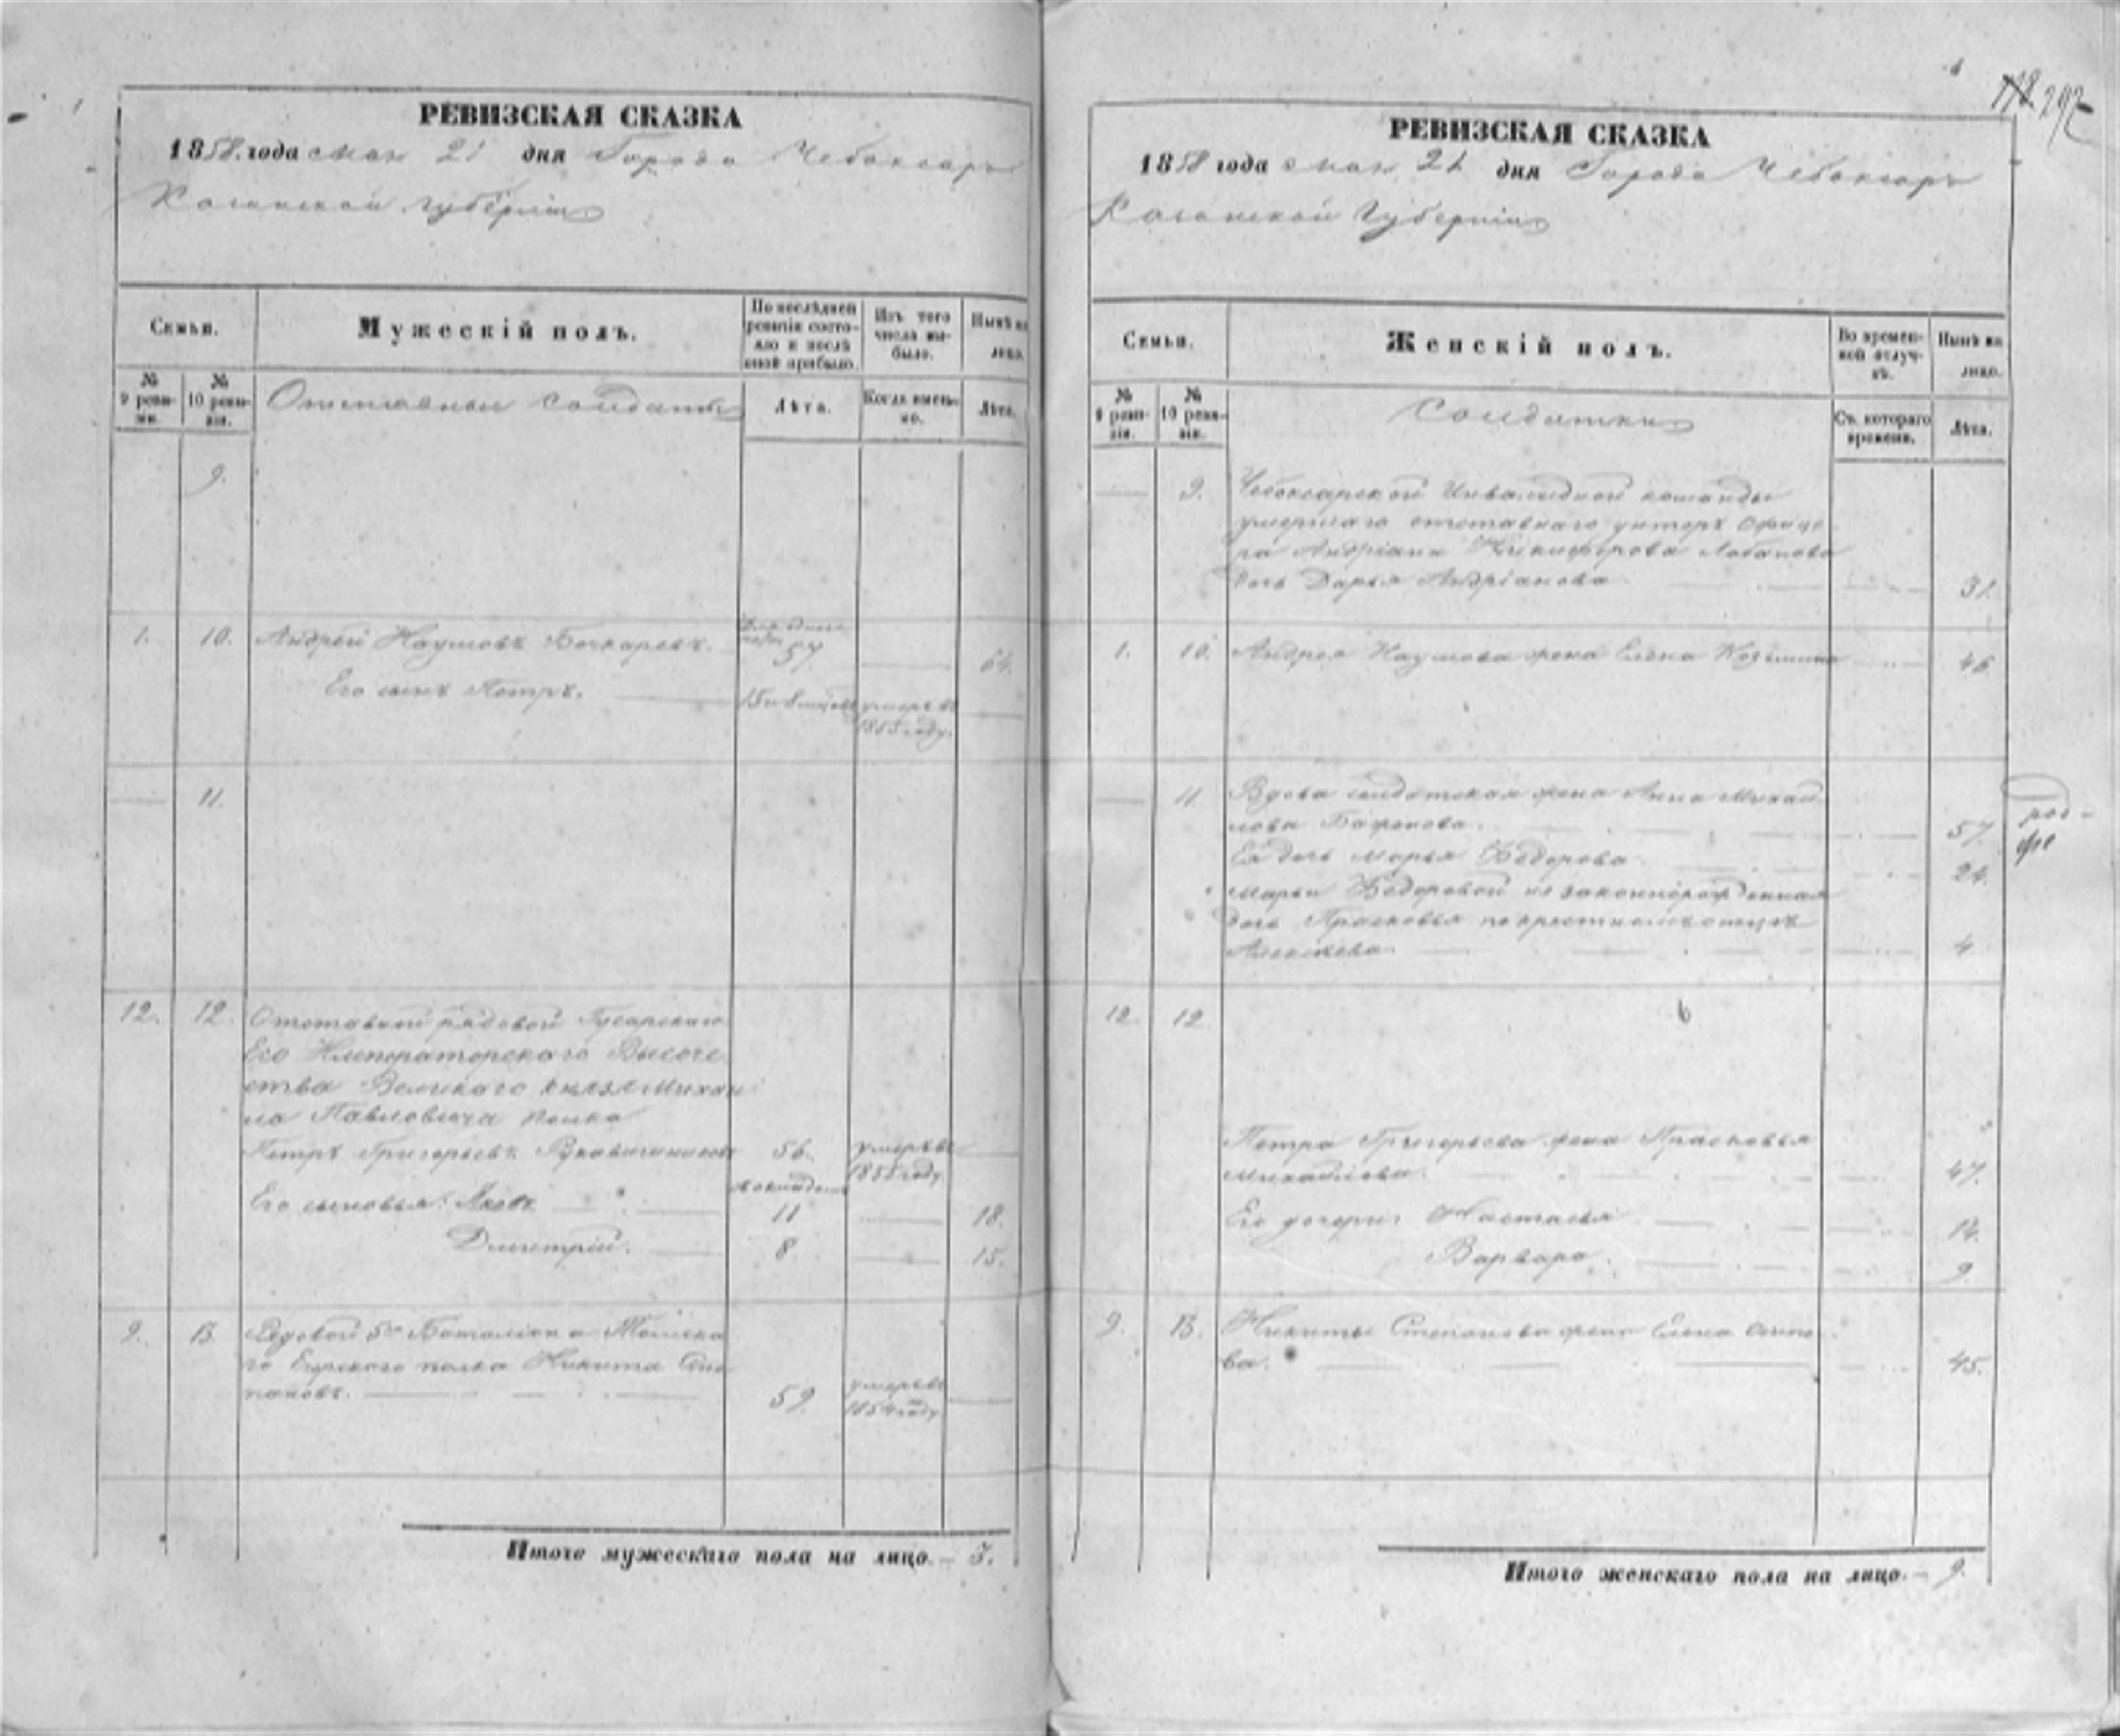 РЕВИЗСКАЯ СКАЗКА
1858. года мая 21 дня Города Чебоксаръ
Казанской губерніи
Семьи.
Мужескій полъ.
По послѣдней ревизіи состояло и послѣ оной прибыло.
Изъ того числа выбыло.
Нынѣ на лицо.
№ 9 ревизіи.
№ 10 ревизіи.
Отставные солдаты
Лѣта.
Когда именно.
Лѣта.
9.
1. 10. Андрей Наумовъ Бочкаревъ. 57 64.
Его сынъ Петръ. умеръ въ
1853 году.
11.
12. 12. Отставной рядовой Гусарскаго
Его Императорскаго Высоче
ства Великаго Князя Михаи
ла Павловича полка
Петръ Григорьевъ Рукавишниковъ 56. умеръ въ
1855 году
Его сыновья: Яковъ 11 18.
Дмитрій. 8. 15.
9. 13. Рядовой 5го Баталіона
го Егерскаго полка Никита Сте
пановъ. 59. умеръ въ
1854 году
Итого мужескаго пола на лицо – 3.
118 297
РЕВИЗСКАЯ СКАЗКА
1858 года мая 21 дня Города Чебоксаръ
Казанской Губерніи
Семьи.
Женскій полъ.
Во временной отлучкѣ.
Нынѣ на лицо.
№ 9 ревизіи.
№ 10 ревизіи.
Солдатки
Съ котораго времени.
Лѣта.
— 9. Чебоксарской Инвалидной команды
умершаго отставнаго унтеръ офице
ра Андріана Никифорова Лобанова
дочь Дарья Андріанова 31.
1. 10. Андрея Наумова жена Елена Козьмина 46
— 11 Вдова солдатская жена Анна Михай
лова Баженова. 57.
Ея дочь Марья Ѳедорова 24.
Марьи Ѳедоровой незаконнорожденная
дочь Прасковья по крестному отцу
Алексѣева 4
12. 12
Петра Григорьева жена Прасковья
Михайлова 47.
Его дочери: Настасья 14.
Варвара. 9
9. 13. Никиты Степанова жена Елена
ва. 45.
Итого женскаго пола на лицо – 9.